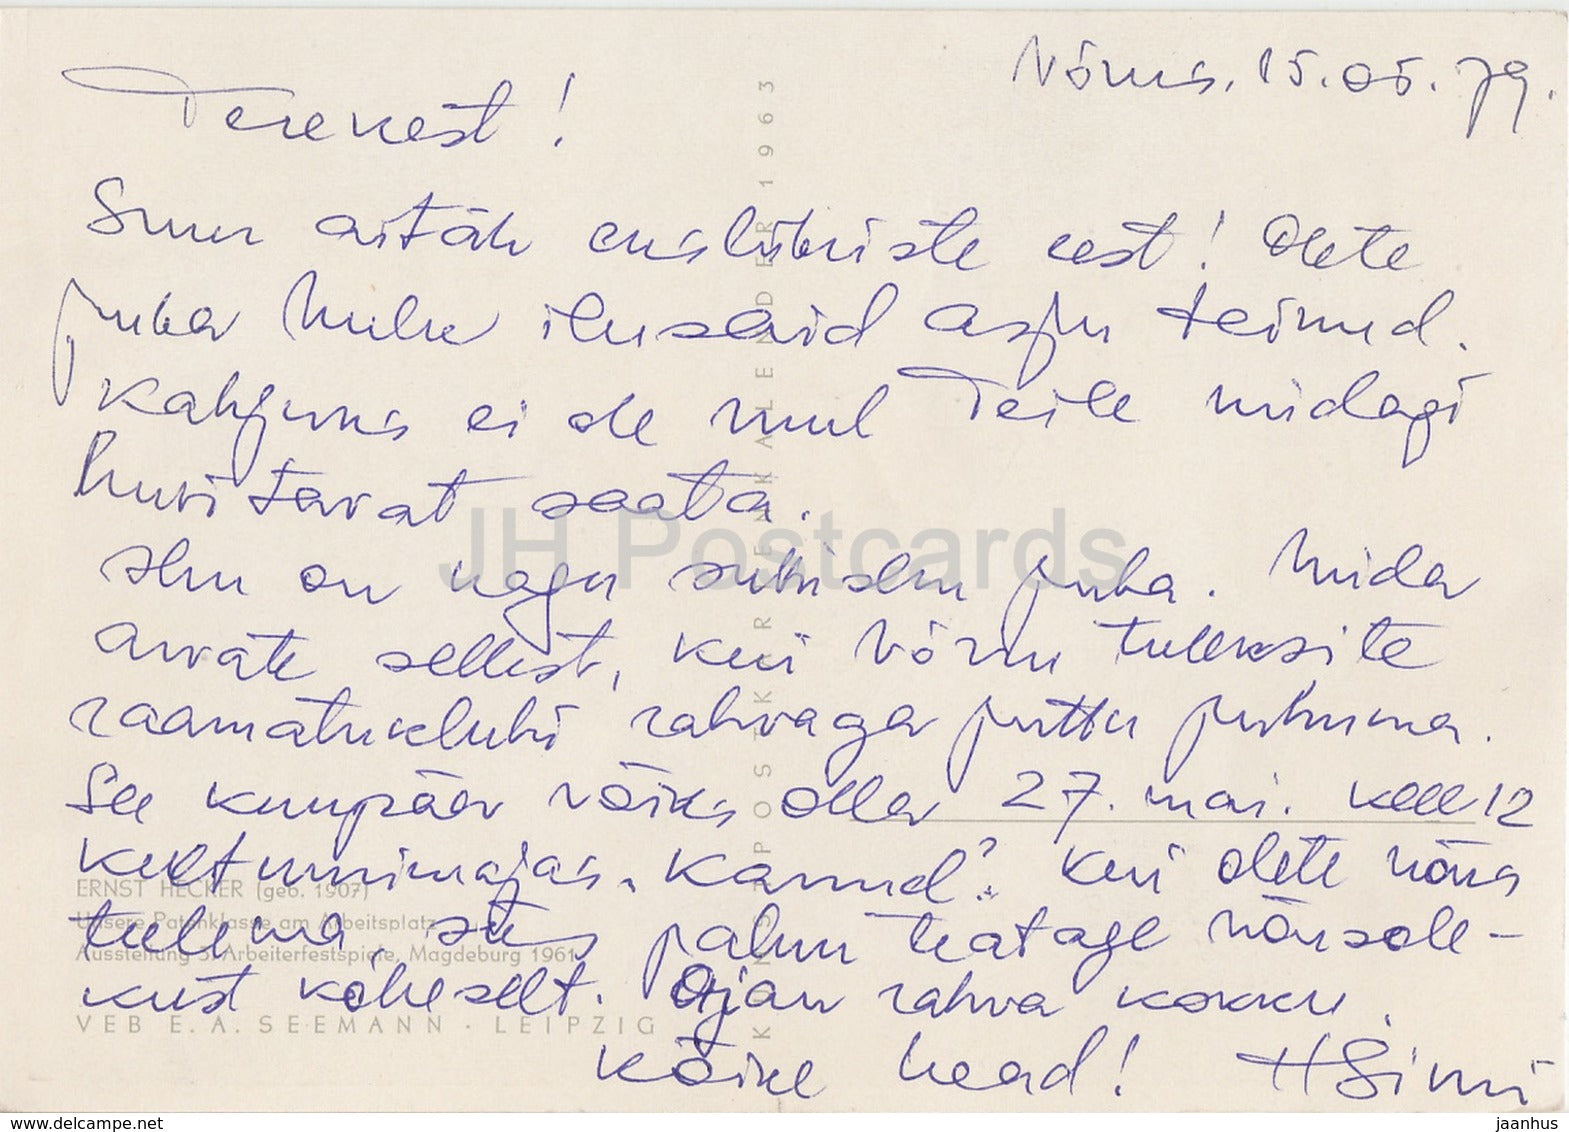 Võrus, 15.05.79.
Terekest!
Suur aitäh exslibriste eest! Olete
juba hulk ilusaid asju teinud.
Kahjuks ei ole mul Teile midagi
huvitavat saata.
Elu on nagu subiselu juba. Mida
arvate sellest, kui Võrru tuleksite
raamatuklubi rahvaga juttu puhuma.
See kuupäev võiks olla 27. mai. kell 12
kultuurimajas "Kannel"? Kui olete nõus
tulema, siis palun teatage nõusole-
kust koheselt. Ajan rahva kokku.
Kõike head! HSimi
KUNST POSTKARTENKALENDER 1963
ERNST HECKER (geb. 1907)
Unsere Patenklasse am Arbeitsplatz
Ausstellung 3. Arbeiterfestspiele, Magdeburg 1961
VEB E. A. SEEMANN · LEIPZIG
JH Postcards
www.delcampe.net
jaanhus